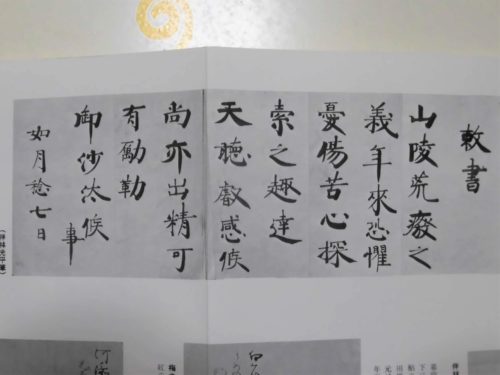 敕書
山陵荒廢之
義年來恐懼
憂傷苦心探
索之趣達
天聴叡感候
尚亦出精可
有勵勤
御沙汰候
事
如月七日